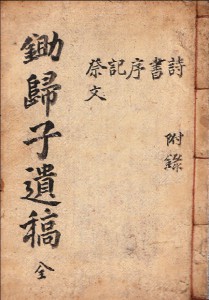 鋤歸子遺稿 全
詩
書
序
記
祭文
附錄